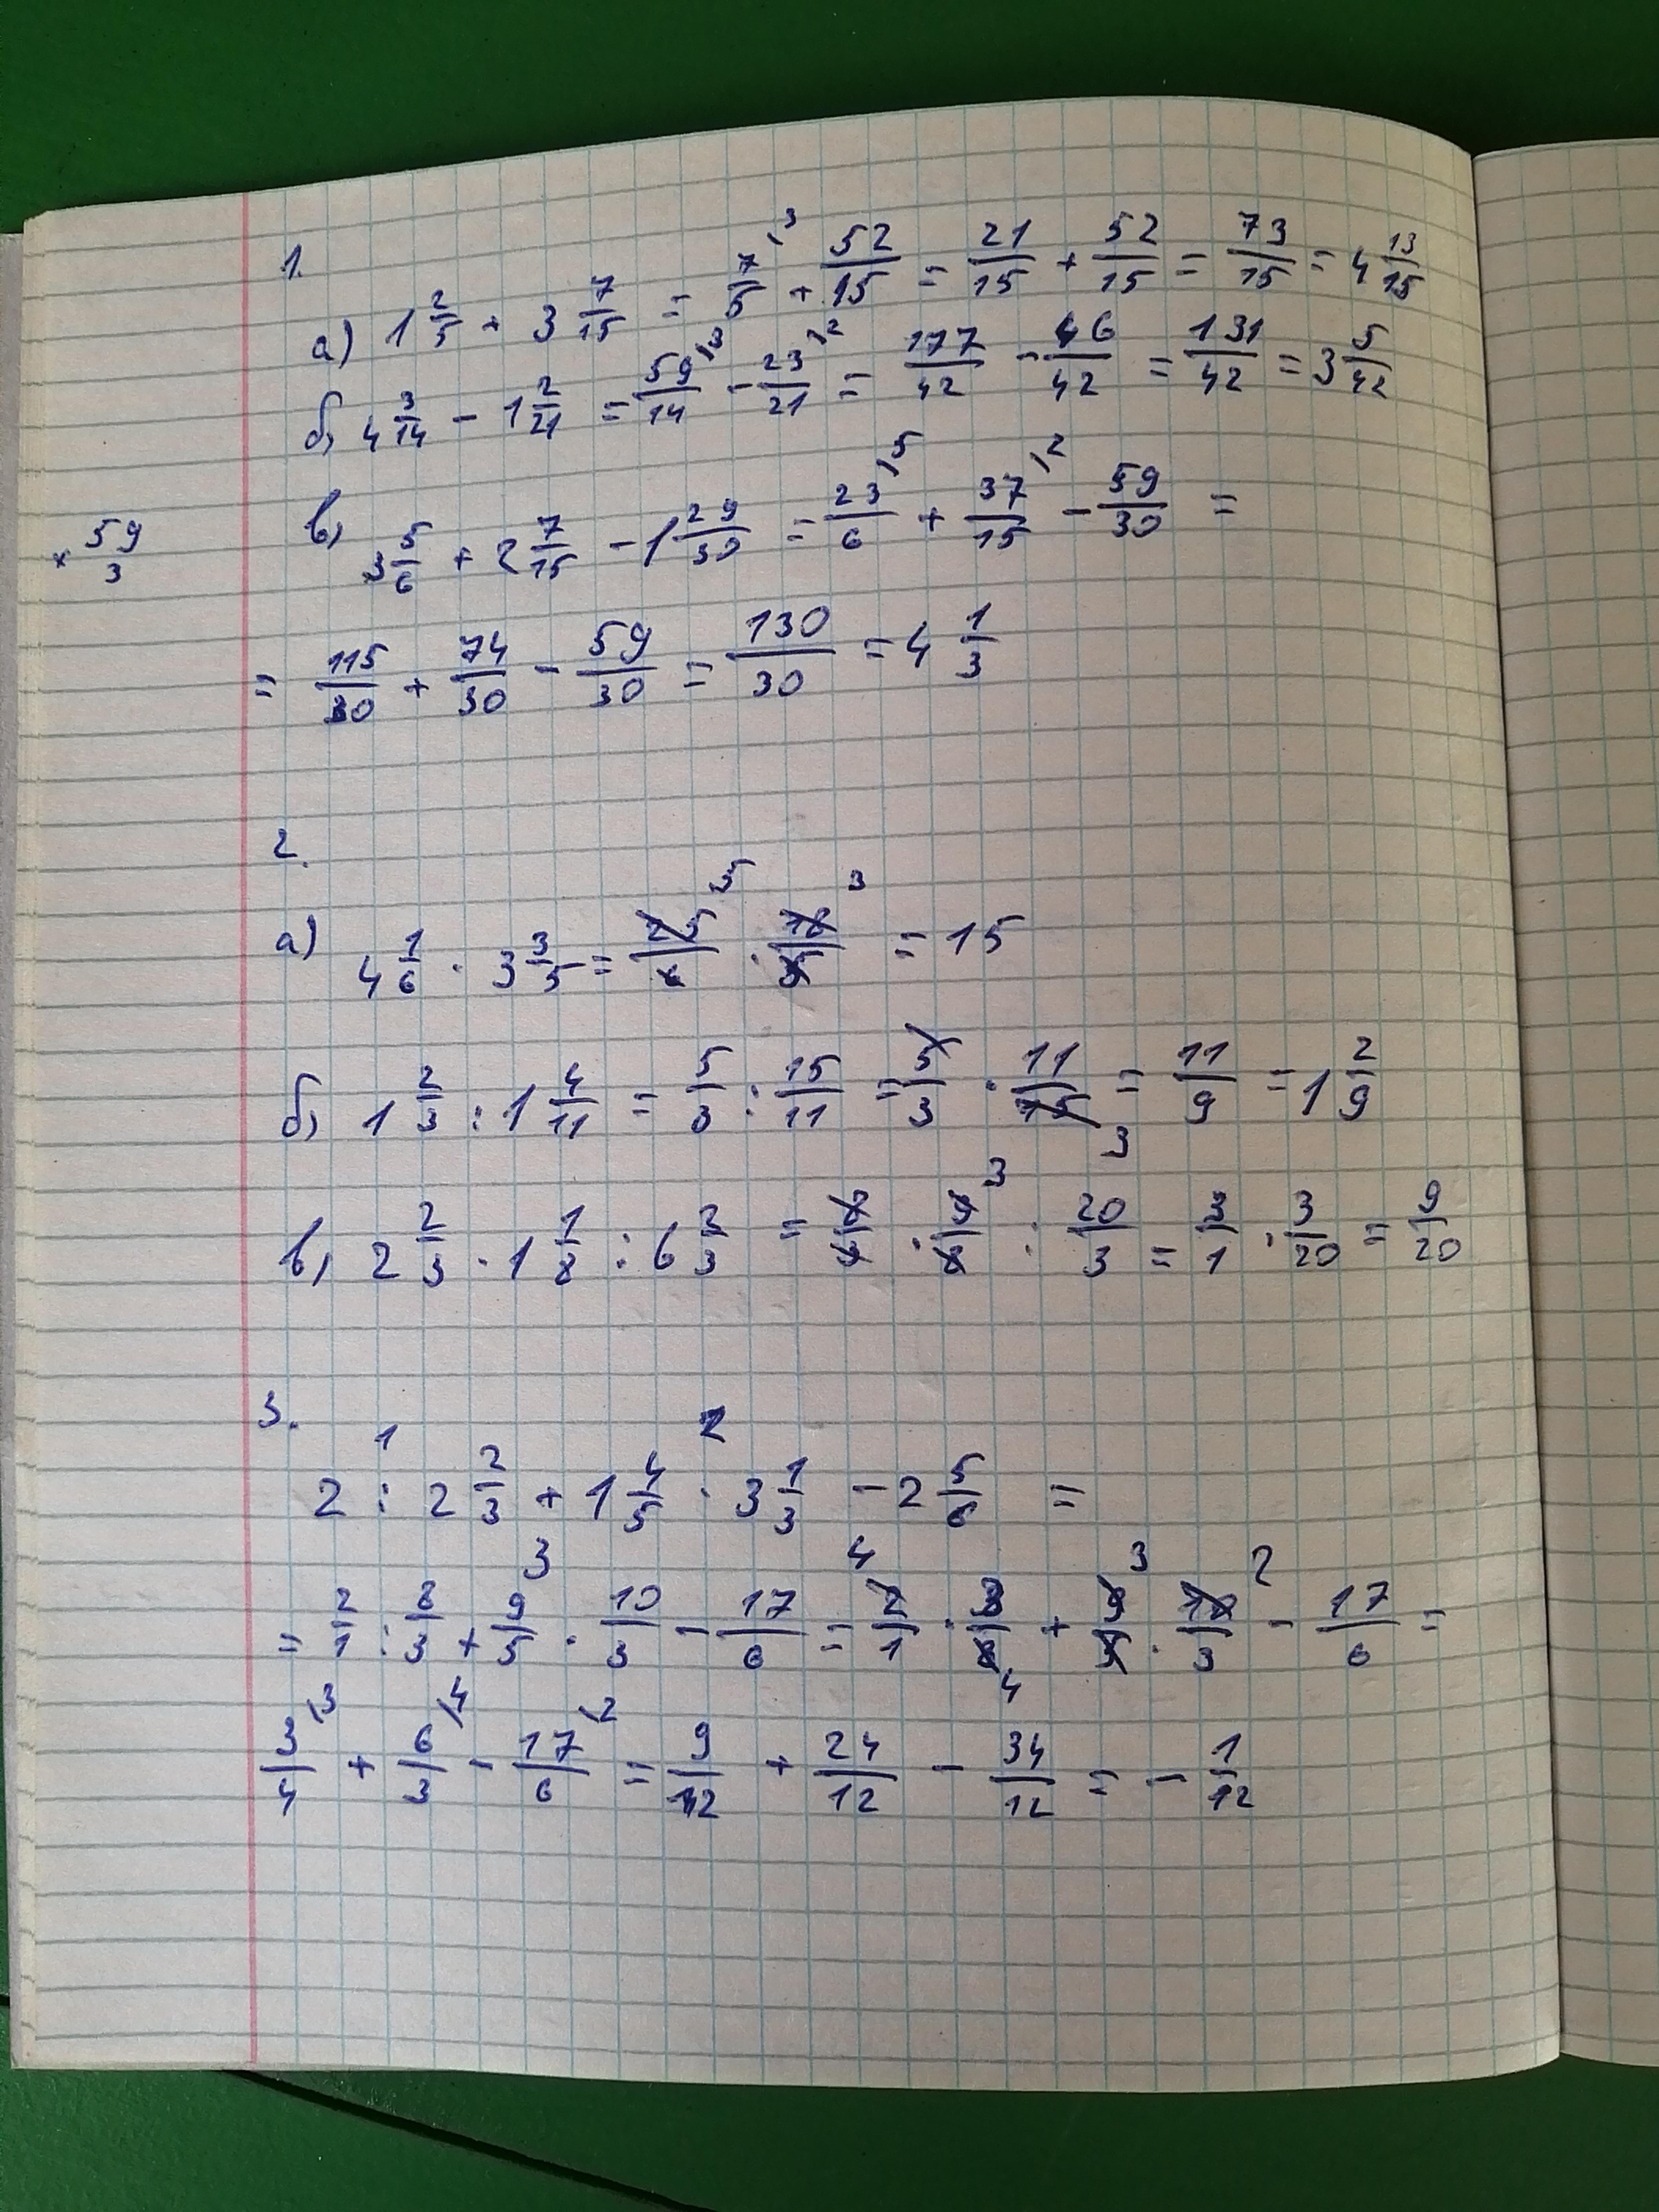 1.
а) 1 2/5 + 3 7/15 = 7/5 \3 + 52/15 = 21/15 + 52/15 = 73/15 = 4 13/15
б) 4 3/14 - 1 2/21 = 59/14 \3 - 23/21 \2 = 177/42 - 46/42 = 131/42 = 3 5/42
× 59
3
в) 3 5/6 + 2 7/15 - 1 29/30 = 23/6 \5 + 37/15 \2 - 59/30 =
= 115/30 + 74/30 - 59/30 = 130/30 = 4 1/3
2.
а) 4 1/6 · 3 3/5 = 25/6 5 · 18/5 3 = 15
б) 1 2/3 : 1 4/11 = 5/3 : 15/11 = 5/3 · 11/15 3 = 11/9 = 1 2/9
в) 2 2/3 · 1 1/8 : 6 2/3 = 8/3 · 9/8 3 : 20/3 = 3/1 · 3/20 = 9/20
3.
1 2
2 : 2 2/3 + 1 4/5 · 3 1/3 - 2 5/6 =
3 4 3 2
= 2/1 : 8/3 + 9/5 · 10/3 - 17/6 = 2/1 · 3/8 4 + 9/5 · 10/3 - 17/6 =
3/4 \3 + 6/3 \4 - 17/6 \2 = 9/12 + 24/12 - 34/12 = - 1/12